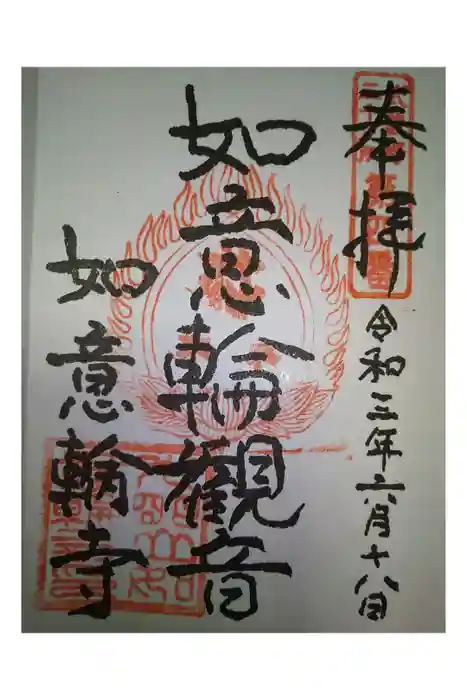 奉拝
令和三年六月十八日
如意輪觀音
如意輪寺